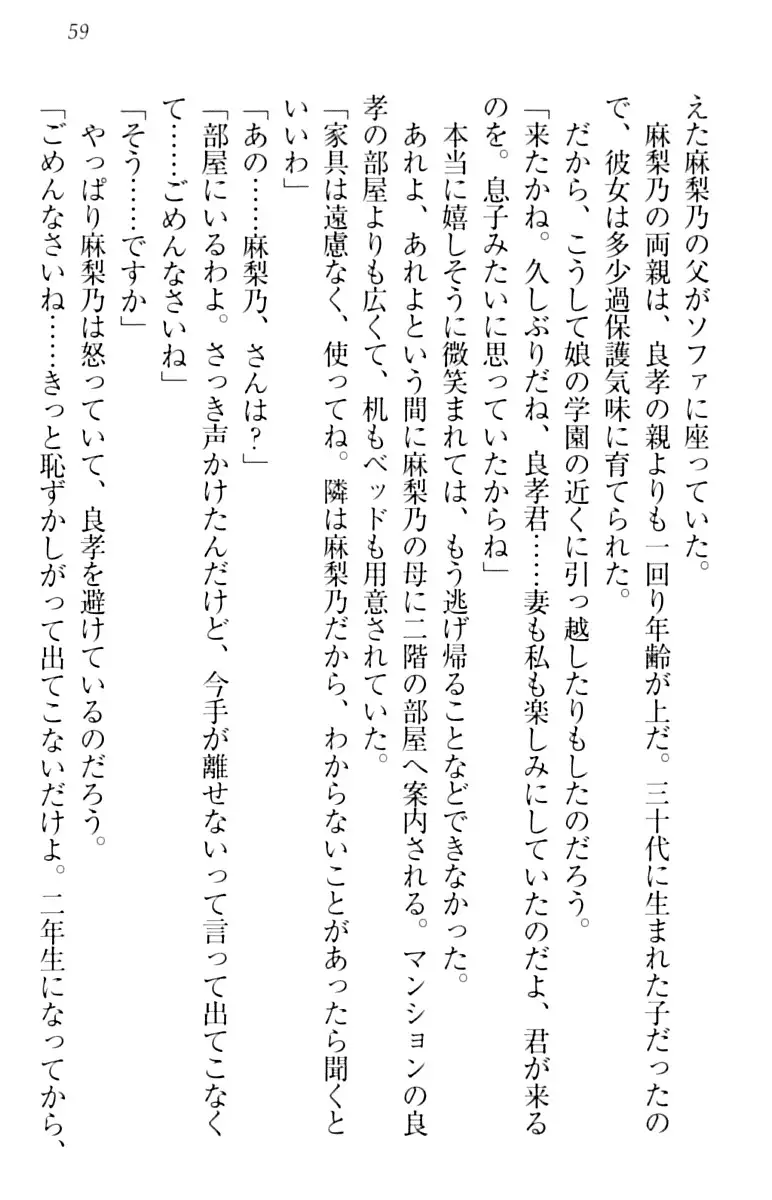 59
えた麻梨乃の父がソファに座っていた。
　麻梨乃の両親は、良孝の親よりも一回り年齢が上だ。三十代に生まれた子だったの
で、彼女は多少過保護気味に育てられた。
　だから、こうして娘の学園の近くに引っ越したりもしたのだろう。
「来たかね。久しぶりだね、良孝君……妻も私も楽しみにしていたのだよ、君が来る
のを。息子みたいに思っていたからね」
　本当に嬉しそうに微笑まれては、もう逃げ帰ることなどできなかった。
　あれよ、あれよという間に麻梨乃の母に二階の部屋へ案内される。マンションの良
孝の部屋よりも広くて、机もベッドも用意されていた。
「家具は遠慮なく、使ってね。隣は麻梨乃だから、わからないことがあったら聞くと
いいわ」
「あの……麻梨乃、さんは？」
「部屋にいるわよ。さっき声かけたんだけど、今手が離せないって言って出てこなく
て……ごめんなさいね」
「そう……ですか」
　やっぱり麻梨乃は怒っていて、良孝を避けているのだろう。
「ごめんなさいね……きっと恥ずかしがって出てこないだけよ。二年生になってから、